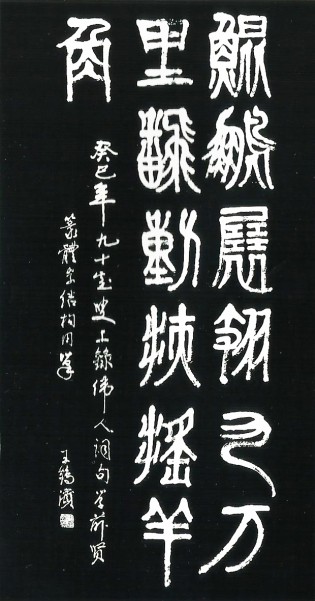 鯤鵬展翅九万
里翻動扶搖羊
角
癸巳年九十叟上錄偉人詞句学前贤
篆體字結构用筆
王鶴濱